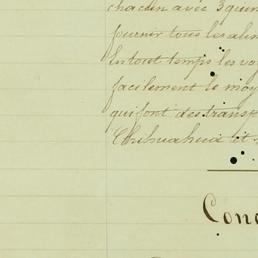 chacun avec 3 quin
fournir tous les alim
En tout temps les vo
facilement le moy
qui font des transp
Chihuahua et
Conc